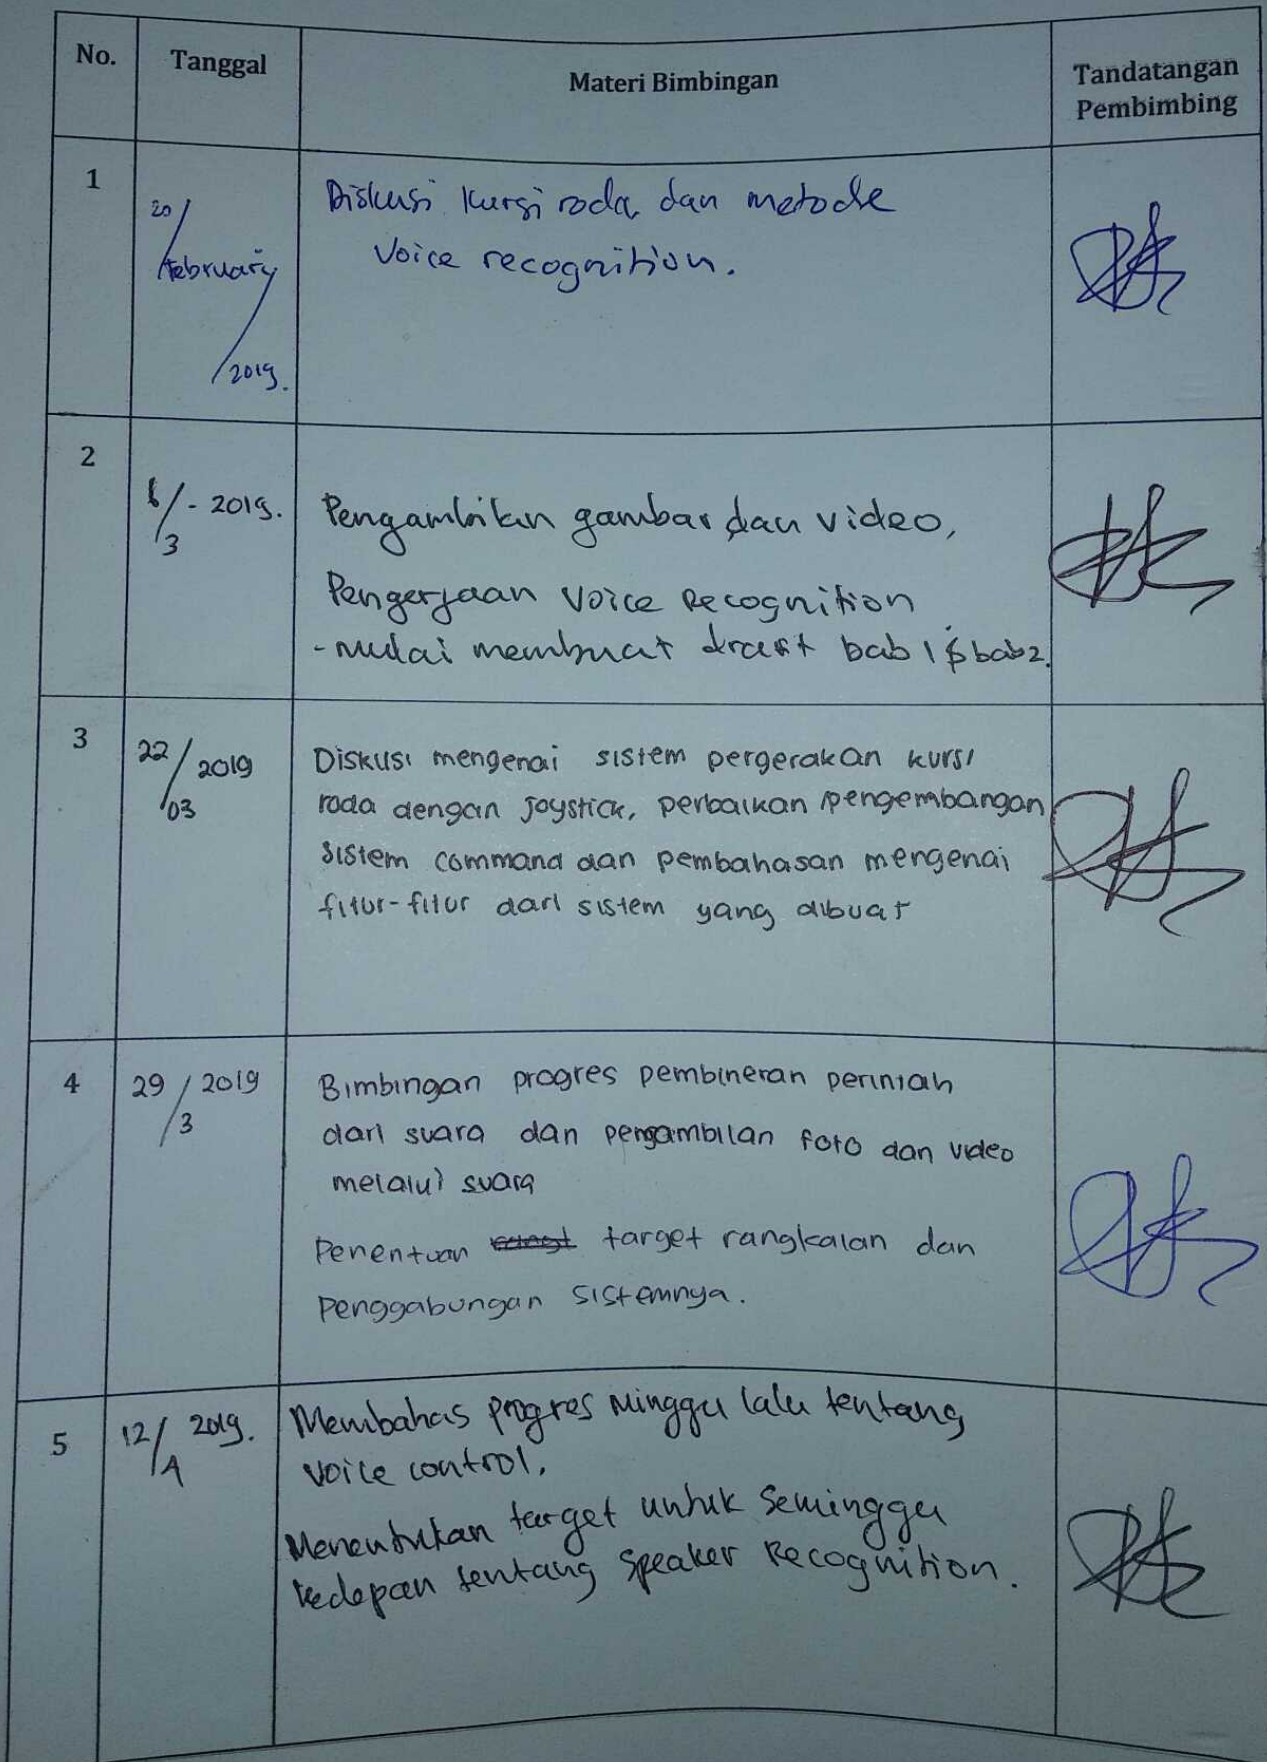 No. Tanggal Materi Bimbingan Tandatangan Pembimbing
1
20/February/2019.
Diskusi kursi roda dan metode
Voice recognition.
2
6/3 - 2019.
Pengambilan gambar dan video,
Pengerjaan Voice Recognition
- mulai membuat draft bab 1 & bab 2.
3
22/03 2019
Diskusi mengenai sistem pergerakan kursi
roda dengan joystick, perbaikan/pengembangan
sistem command dan pembahasan mengenai
fitur-fitur dari sistem yang dibuat
4
29/3 2019
Bimbingan progres pembineran perintah
dari suara dan pengambilan foto dan video
melalui suara
Penentuan target rangkaian dan
penggabungan sistemnya.
5
12/4 2019.
Membahas progres Minggu lalu tentang
voice control.
Menentukan target untuk Seminggu
kedepan tentang Speaker Recognition.